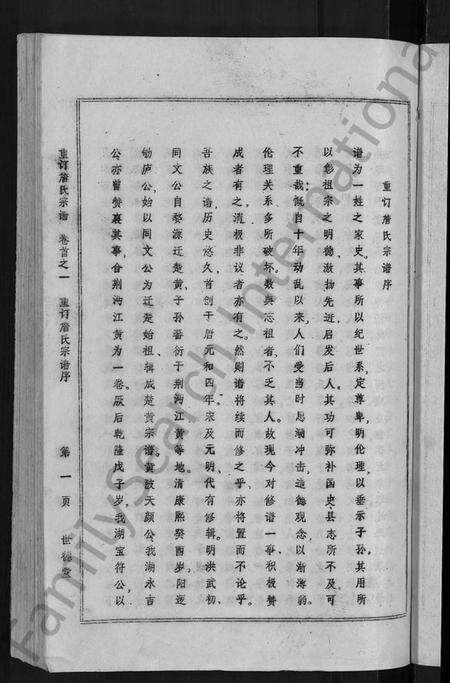 重订詹氏宗谱序
谱为一姓之家史。其事所以纪世系,定尊卑,明伦理,以垂示子孙,其用所
以彰祖宗之明德,激扬先近,启发后人,其功可弥补国史、县志所不及,可
不重哉。慨自十年动乱以来,人们受当时思潮冲击,道德观念,以渐薄弱。
伦理关系,多所破坏。数典忘祖者,不乏其人。故现今对修谱一事,积极赞
成者有之,消极非议者亦有之。然则谱将续而修之乎,亦将置而不论乎。
吾族之谱,历史悠久,首创于唐元和四年。宋及元明,代有修辑。明洪武初,
同文公自婺源迁楚黄,子孙蕃衍于荆沔江黄等地。清康熙癸酉岁,阳逻
勉庐公,始以同文公为迁楚始祖,辑成楚黄宗谱。黄陂天颜公,我湖永吉
公,亦曾赞襄其事,合荆沔江黄为一卷。厥后乾隆戊子岁,我湖宝符公,以
重订詹氏宗谱 卷首之一 重订詹氏宗谱序 第一页 世德堂
FamilySearch International